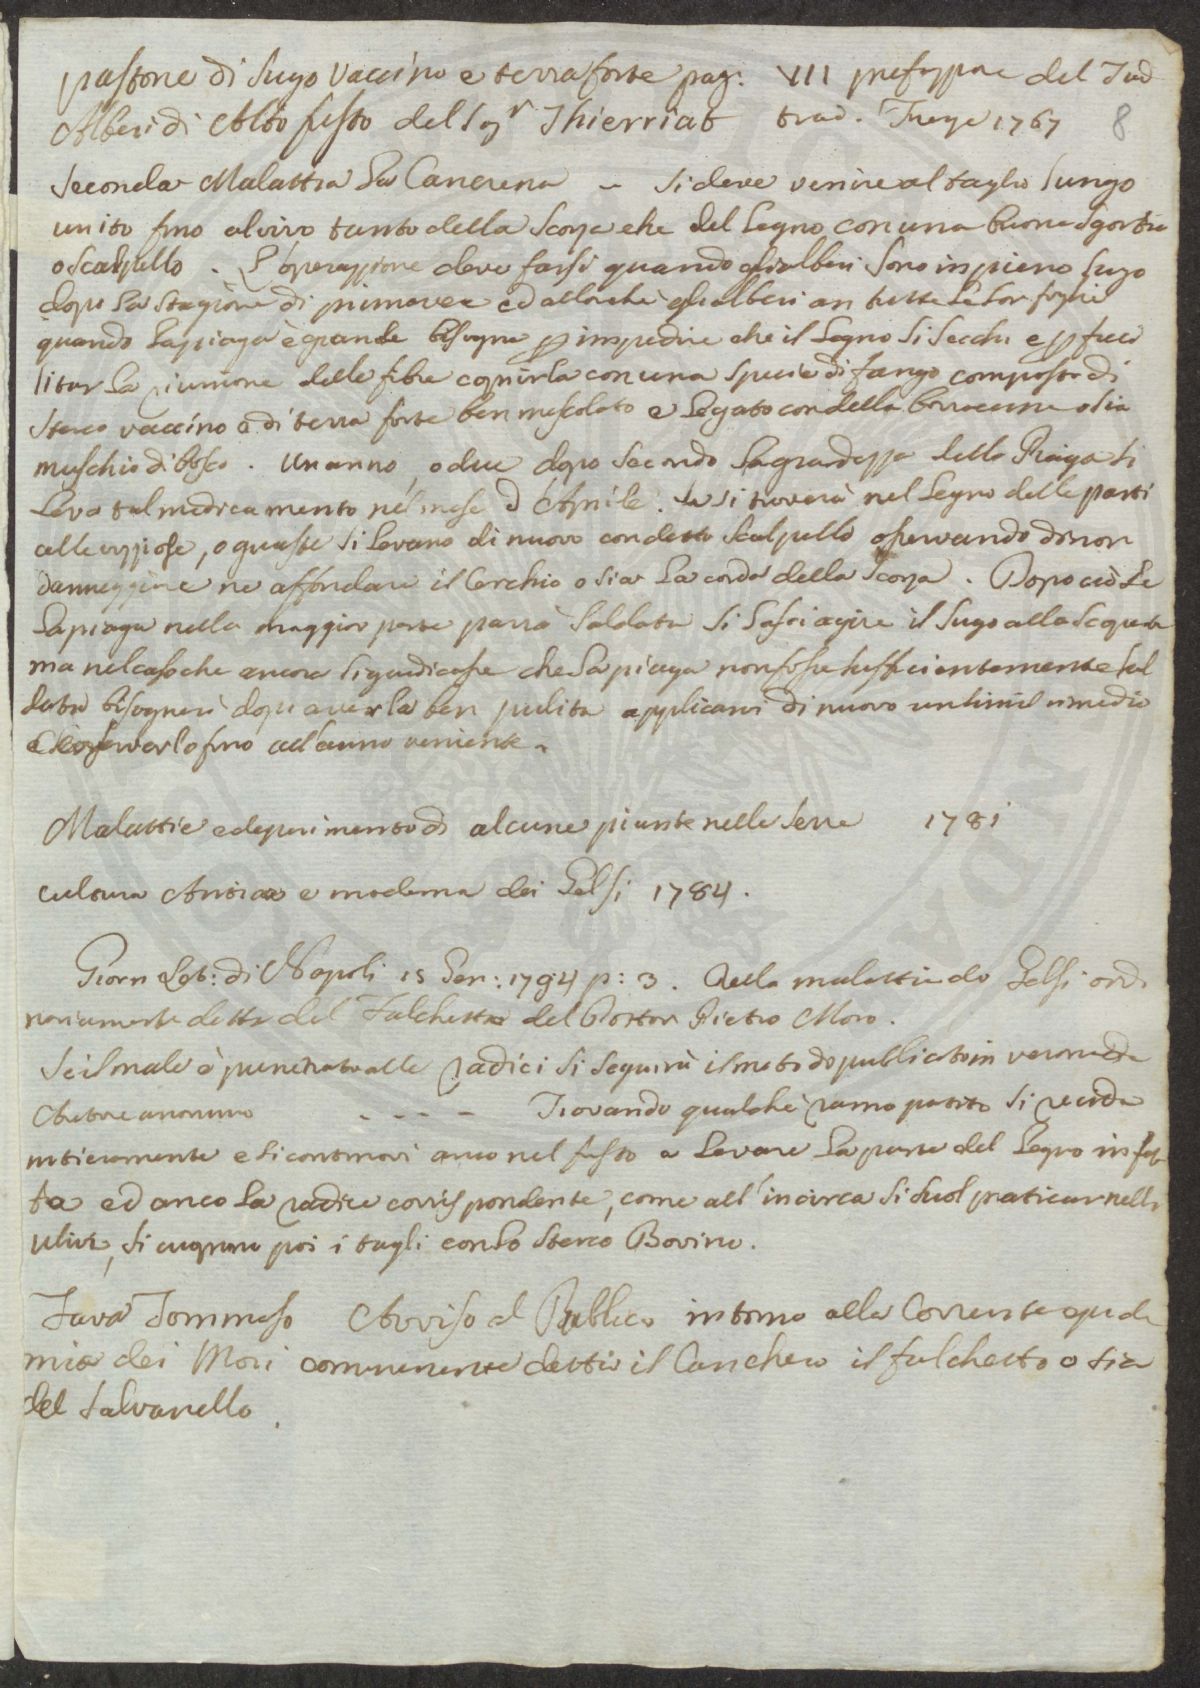 pastone di sugo vaccino e terra forte pag. VII prefazione del Trad
Alberi di Alto fusto del Sigr Thierriat trad. 1767 8
Seconda Malattia La Cancrena – si deve venire al taglio lungo
unito fino al vivo tanto della scorza che del Legno con una buona sgorbia
o scalpello. L'operazzione deve farsi quando gli alberi sono in pieno sugo
dopo la stagione di primavera ed allorchè gli alberi an tutte le lor foglie
quando la piaga è grande bisogna p impedire che il Legno si secchi e p faci
litar la riunione delle fibre coprirla con una specie di fango composto di
sterco vaccino e di terra forte ben mescolato e Legato con della borracina o sia
muschio di bosco. Un anno, o due dopo secondo la grandezza della Piaga si
Leva tal medicamento nel mese d'Aprile. se si troverà nel Legno delle parti
alle vizziose, o guaste si Levano di nuovo con detto scalpello osservando di non
danneggiare ne affondare il Cerchio o sia la corda della scorza. Dopo ciò se
la piaga nella maggior parte parrà saldata si lasci agire il sugo alla scoperta
ma nel caso che ancora si giudicasse che la piaga non fosse sufficientemente sal
data bisognerà dopo averla ben pulita applicarvi di nuovo un simil rimedio
e conservarlo fino all'anno veniente.
Malattie e deperimento di alcune piante nelle serre 1781
cultura Antica e moderna dei Gelsi 1784.
Giorn Let: di Napoli 15 Gen: 1794 p: 3. Della malattia de Gelsi ordi
nariamente detta del Falchetto del Dottor Pietro Moro.
Se il male è penetrato alle radici si seguirà il metodo publicato in verona da
Autore anonimo - - - - Trovando qualche ramo patito si recida
intieramente e si continovi anco nel fusto a Levare la parte del Legno infet
ta ed anco la radice corrispondente, come all'incirca si suol praticar nelli
ulivi, si cuoprono poi i tagli con lo sterco Bovino.
Fava Tommaso Avviso al Publico intorno alla Corrente epide
mia dei Mori comunemente detta il Canchero il falchetto o sia
del salvanello.